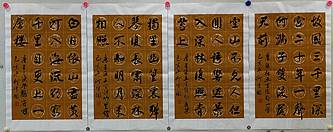 故國三千里深
宮二十年一聲
何滿子雙淚落
君前
空山不見人但
聞人語響返景
入深林復照青
苔上
獨坐幽篁裏彈
琴復長嘯深林
人不知明月來
相照
白日依山盡黃
河入海流欲窮
千里目更上一
層樓